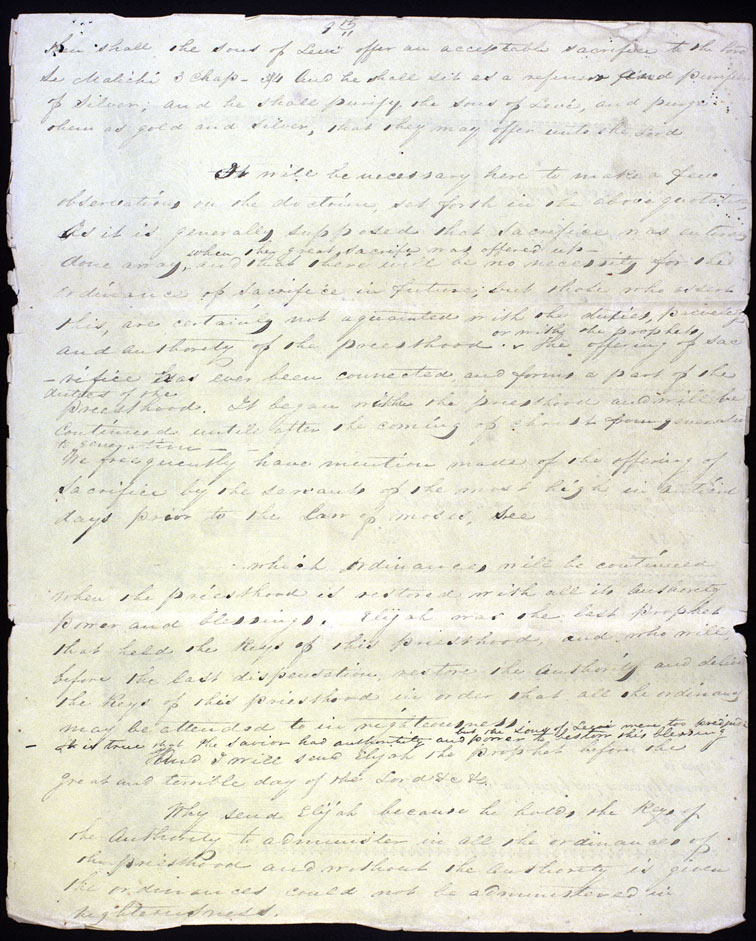 9th
then shall the sons of Levi offer an acceptable sacrifice to the Lord
Se Malichi 3 Chap - 3/4 And he shall sit as a refiner and purifier
of Silver; and he shall purify the sons of Levi, and purge
them as gold and silver, that they may offer unto the Lord
It will be necessary here to make a few
observations on the doctrine, set forth in the above quotation,
As it is generally supposed that sacrifice was entirely
when the great sacrifice was offered up -
done away, and that there will be no necessity for the
ordinance of sacrifice in future; but those who assert
this, are certainly not aquainted with the duties, privileges
or with the prophets
and authority of the priesthood. The offering of sac
-rifice has ever been connected and forms a part of the
duties of the
priesthood. It began with the priesthood and will be
continued untill after the coming of Christ from generation
to generation -
We freequently have mention made of the offering of
sacrifice by the servants of the most high in antient
days prior to the law of moses, See
which ordinances will be continued
when the priesthood is restored with all its authority
power and blessings. Elijah was the last prophet
that held the keys of this priesthood, and who will,
before the last dispensation, restore the authority and deliver
the Keys of this priesthood in order that all the ordinances
may be attended to in righteousness,
but the sons of Levi were too prejudi
- It is true that the Savior had authority and power to bestow this blessing
And I will send Elijah the Prophet before the
great and terrible day of the Lord &c &c.
Why send Elijah because he holds the Keys of
the Authority to administer in all the ordinances of
the priesthood and without the authority is given
the ordinances could not be administered in
righteousness.